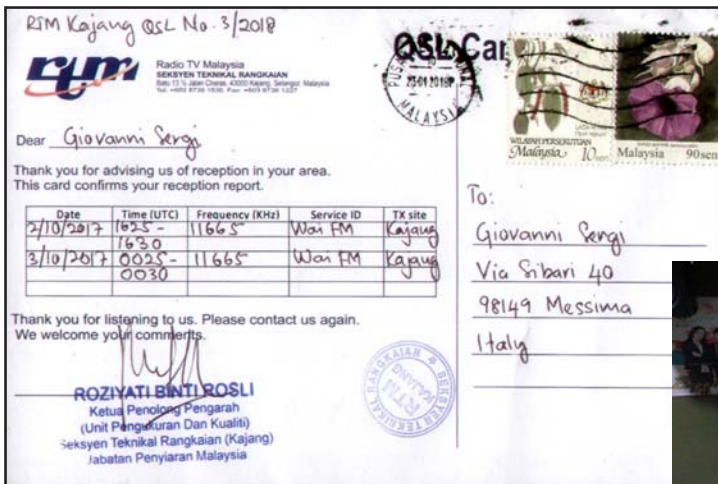 RTM Kajang QSL No. 3/2018
QSL Car
rtm
Radio TV Malaysia
SEKSYEN TEKNIKAL RANGKAIAN
Batu 13 ½ Jalan Cheras, 43000 Kajang, Selangor, Malaysia
Tel: +603 8736 1530, Fax: +603 8736 1227
MALAYSIA
23-01 2018
WILAYAH PERSEKUTUAN
Malaysia 10 sen
Malaysia 90 sen
Dear Giovanni Sergi
Thank you for advising us of reception in your area.
This card confirms your reception report.
Date Time (UTC) Frequency (KHz) Service ID TX site
2/10/2017 1625 - 11665 Wai FM Kajang
1630
3/10/2017 0025 - 11665 Wai FM Kajang
0030
Thank you for listening to us. Please contact us again.
We welcome your comments.
ROZIYATI BINTI ROSLI
Ketua Penolong Pengarah
(Unit Pengukuran Dan Kualiti)
Seksyen Teknikal Rangkaian (Kajang)
Jabatan Penyiaran Malaysia
SEKSYEN TEKNIKAL RANGKAIAN
RTM
KAJANG
To:
Giovanni Sergi
Via Sibari 40
98149 Messima
Italy